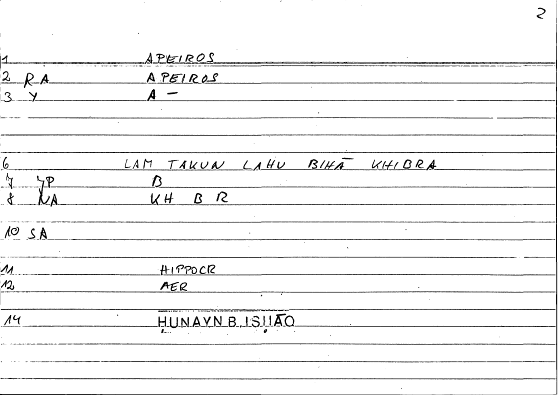 2
1 APEIROS
2 RA APEIROS
3 Y A –
6 LAM TAKUN LAHU BIHĀ KHIBRA
7 YP B
8 NA KH B R
10 SA
11 HIPPOCR
12 AER
14 ḤUNAYN B. ISḤĀQ